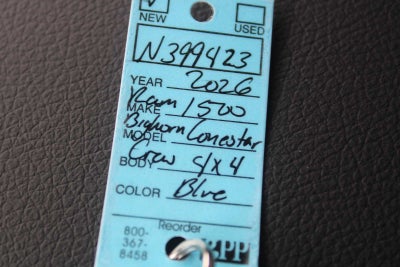 NEW USED
N399423
YEAR 2026
MAKE Ram 1500
MODEL Bighorn Lonestar
BODY Crew 4x4
COLOR Blue
Reorder
800-
367-
8458
RPP